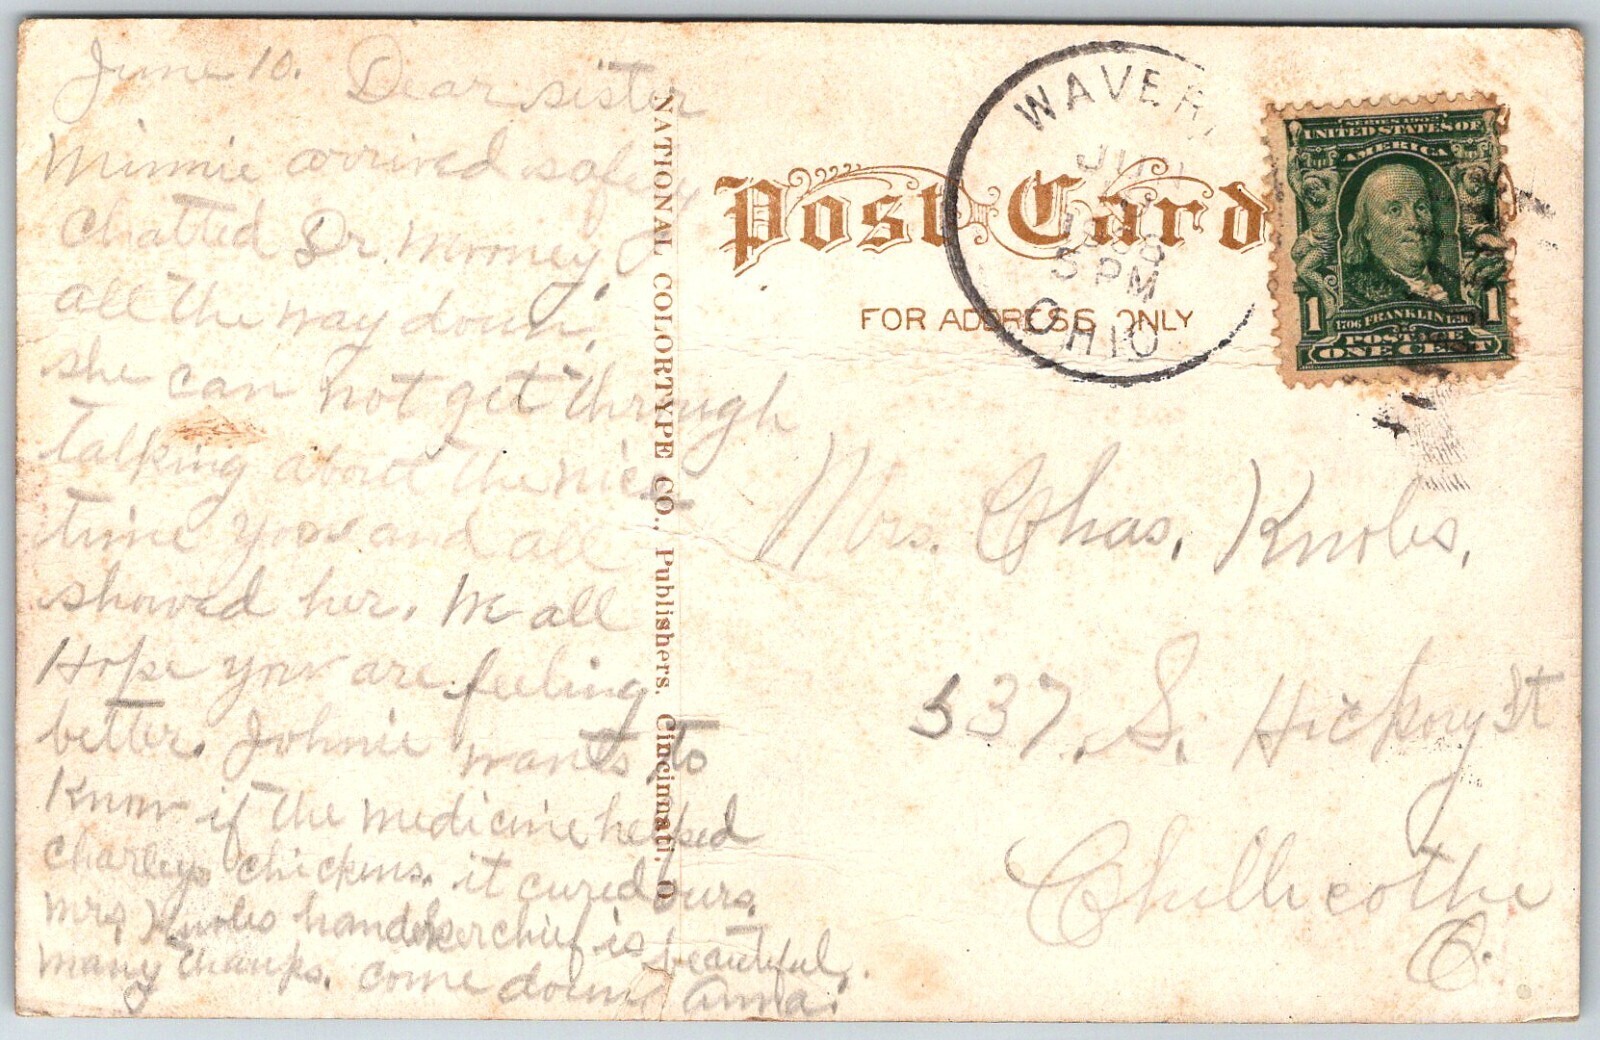 June 10. Dear sister
Minnie arrived safely
chatted Dr. Mooney
all the way down,
she can not get through
talking about the nice
time you and all
showed her. We all
Hope you are feeling
better. Johnie wants to
Know if the medicine helped
Charleys chickens. it cured ours.
Mrs. Knobs handkerchief is beautiful,
many thanks. come down Anna.
NATIONAL COLORTYPE CO., Publishers, Cincinnati, O.
Post Card
FOR ADDRESS ONLY
WAVER
JUN
1908
5 PM
OHIO
SERIES 1902
UNITED STATES OF
AMERICA
1 1
1706 FRANKLIN 1790
POSTAGE
ONE CENT
Mrs. Chas. Knobs,
537. S. Hickory St
Chillicothe
O.